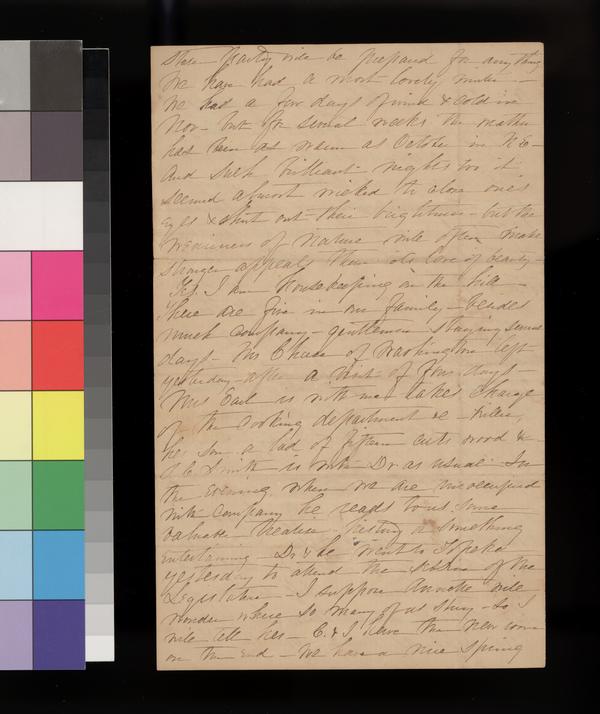 State party will be prepared for anything
We have had a most lovely winter -
We had a few days of wind & cold in
Nov - but for several weeks the weather
has been as warm as October in N.E -
And such brilliant nights too it
seemed almost wicked to close ones
eyes & shut out their brightness - but the
weariness of nature will often make
stronger appeals than its love of beauty -
Yes, I am housekeeping on the hill -
There are five in our family - besides
much company - gentlemen staying several
days - Mr Chase of Washington left
yesterday after a visit of four days -
Mrs is with me takes charge
of the cooking department &c - Willie,
her son a lad of fifteen cuts wood &c
Smith is with Dr as usual - In
the evening when we are unoccupied
with company he reads to us some
valuable treatise history or something
entertaining - Dr & he went to Topeka
yesterday to attend the session of the
Legislature - I suppose Annette will
wonder where so many of us stay - so I
will tell her - C. & I have the new room
on the end - We have a nice spring